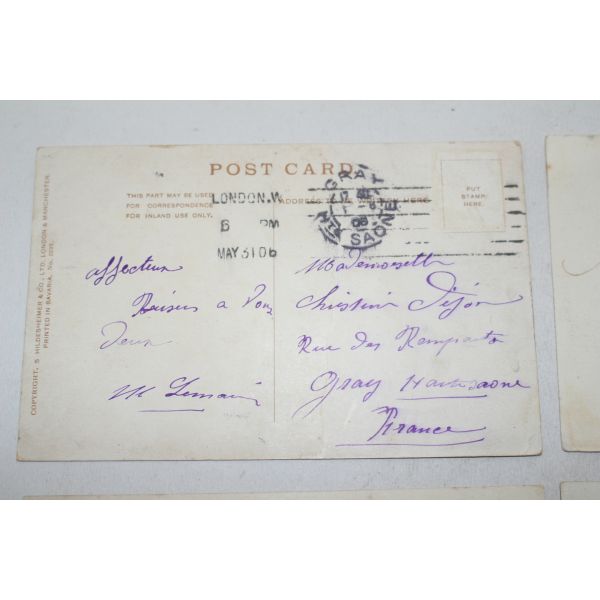 POST CARD
THIS PART MAY BE USED
FOR CORRESPONDENCE
FOR INLAND USE ONLY.
LONDON.W
6 PM
MAY 31 06
ADDRESS HERE
GRAY
Hte SAONE
06
PUT
STAMP
HERE.
COPYRIGHT, S HILDESHEIMER & CO., LTD. LONDON & MANCHESTER.
PRINTED IN BAVARIA, No.
affectueux
Baisers a Vous
Deux
M Lemaire
Mademoiselle
Rue des Remparts
Gray Haute Saone
France